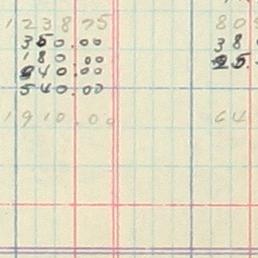 1238 75 809
350.00 38
180.00 25.
840.00
540.00
1910.00 64